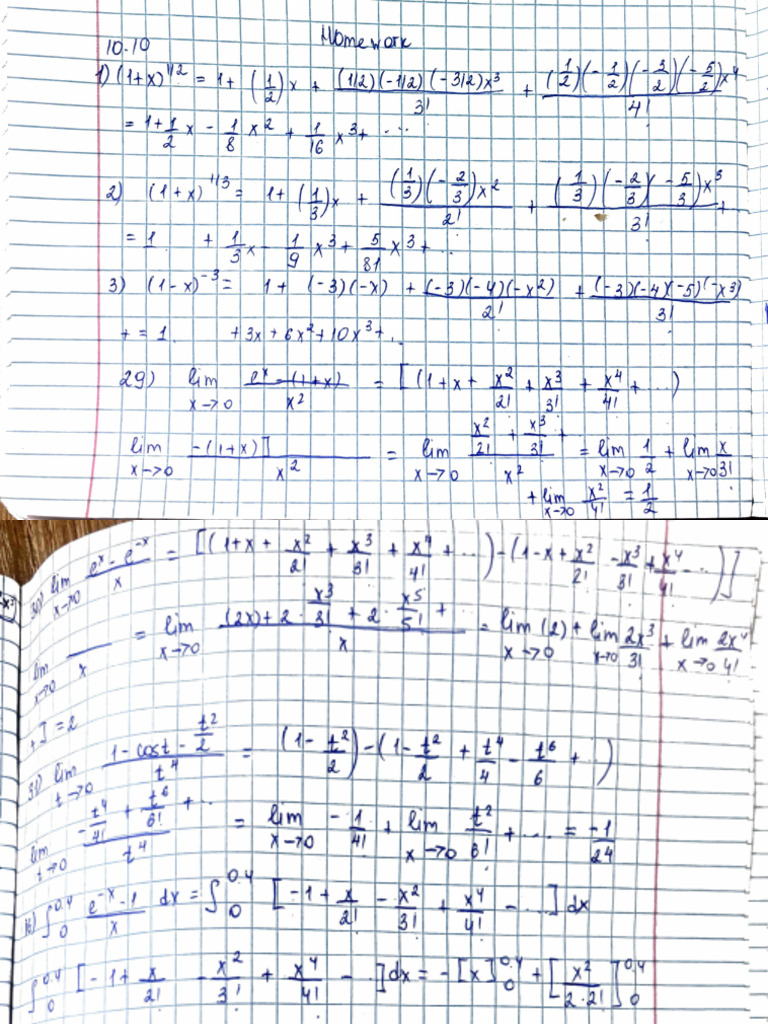 Homework
10.10
1) (1+x)^1/2 = 1 + (1/2)x + (1/2)(-1/2)(-3/2)x^3/3! + (1/2)(-1/2)(-3/2)(-5/2)x^4/4!
= 1 + 1/2 x - 1/8 x^2 + 1/16 x^3 + ...
2) (1+x)^1/3 = 1 + (1/3)x + (1/3)(-2/3)x^2/2! + (1/3)(-2/3)(-5/3)x^3/3! + ..
= 1 + 1/3 x - 1/9 x^3 + 5/81 x^3 + ..
3) (1-x)^-3 = 1 + (-3)(-x) + (-3)(-4)(-x^2)/2! + (-3)(-4)(-5)(-x^3)/3!
+ = 1. + 3x + 6x^2 + 10x^3 + ..
29) lim x→0 e^x - (1+x)/x^2 = [(1 + x + x^2/2! + x^3/3! + x^4/4! + ...)
lim x→0 -(1+x)]/x^2 = lim x→0 x^2/2! + x^3/3! + /x^2 = lim x→0 1/2 + lim x→0 x/3!
+ lim x→0 x^2/4! = 1/2
30) lim x→0 e^x - e^-x/x = [(1 + x + x^2/2! + x^3/3! + x^4/4! + ...) - (1 - x + x^2/2! - x^3/3! + x^4/4! - ...)]
lim x→0 /x = lim x→0 (2x) + 2 · x^3/3! + 2 · x^5/5! + ../x = lim x→0 (2) + lim x→0 2x^3/3! + lim x→0 2x^4/4!
= 2
31) lim t→0 1 - cost - t^2/2/t^4 = (1 - t^2/2) - (1 - t^2/2 + t^4/4 - t^6/6 + ..)
lim t→0 -t^4/4! + t^6/6! + ../t^4 = lim x→0 -1/4! + lim x→0 t^2/6! + .... = -1/24
∫0^0.4 e^-x - 1/x dx = ∫0^0.4 [-1 + x/2! - x^2/3! + x^4/4! - ...] dx
∫0^0.4 [-1 + x/2! - x^2/3! + x^4/4! - ..] dx = -[x]0^0.4 + [x^2/2·2!]0^0.4